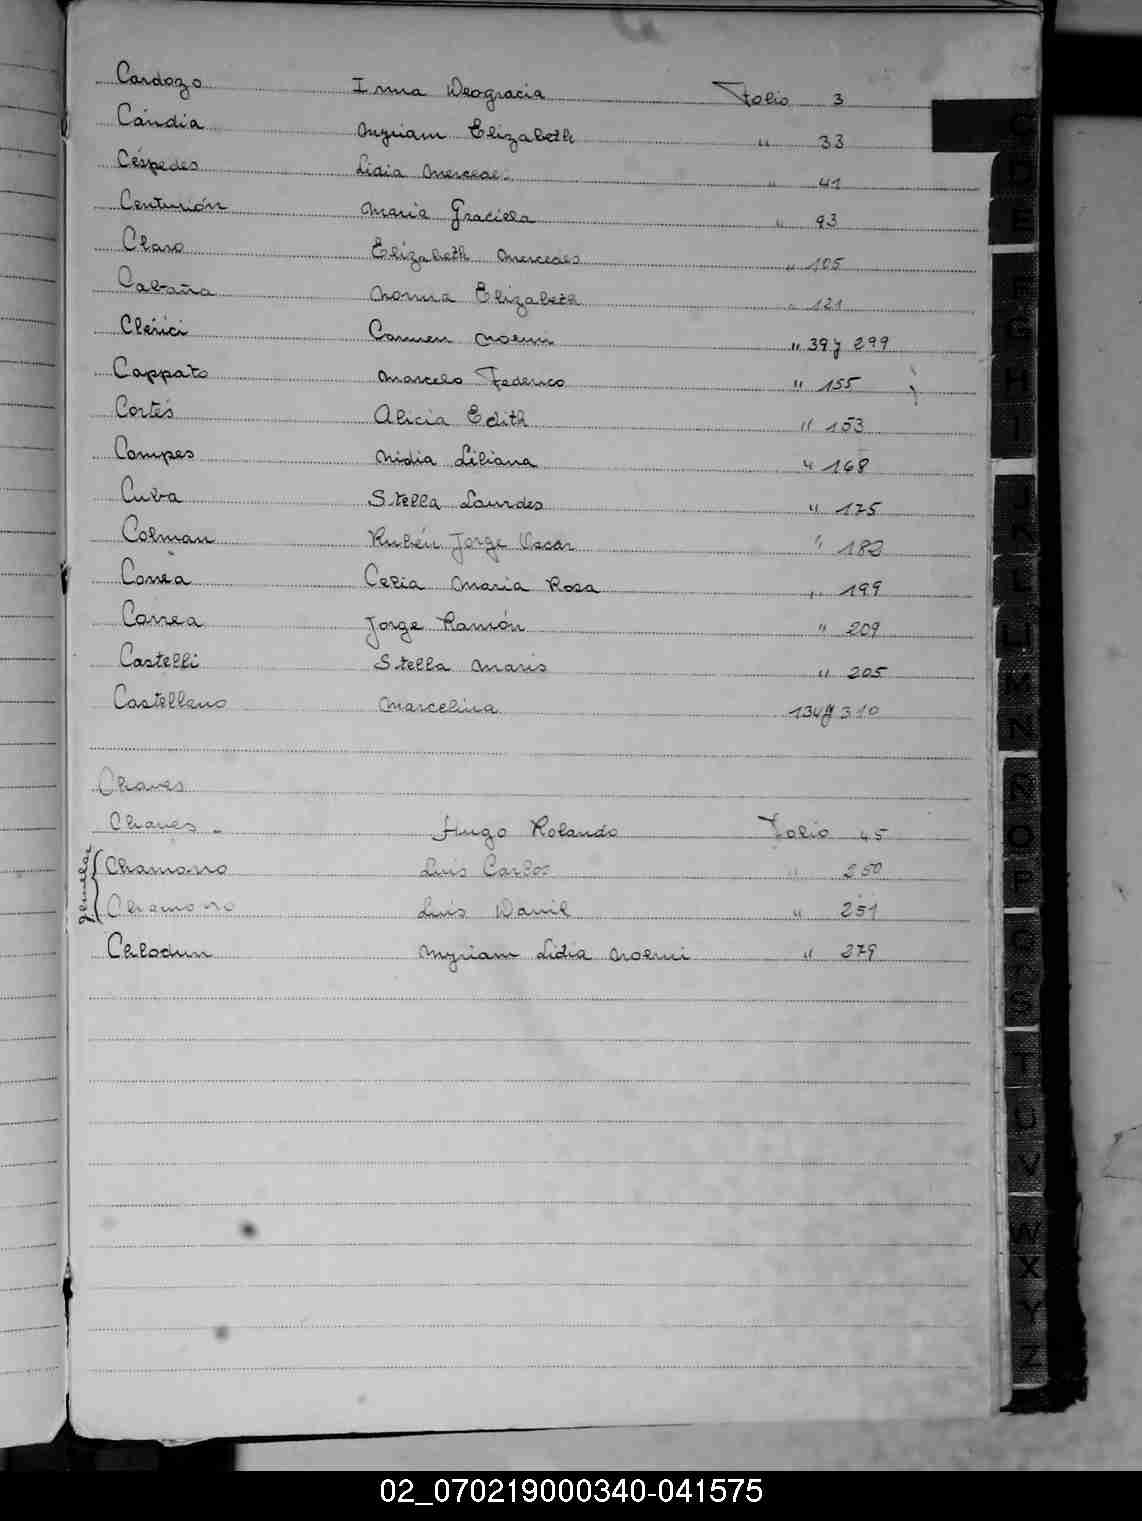 Cardozo Irma Deogracia Folio 3
Cándia Myriam Elizabeth " 33
Céspedes Lidia Mercedes " 41
Centurión María Graciela " 93
Claro Elizabeth Mercedes " 105
Cabaña Norma Elizabeth " 121
Clérici Carmen Noemi " 39 y 299
Cappato Marcelo Federico " 155
Cortés Alicia Edith " 153
Compes Nidia Liliana " 168
Cuba Stella Lourdes " 175
Colman Rubén Jorge Oscar " 182
Correa Celia Maria Rosa " 199
Correa Jorge Ramón " 209
Castelli Stella Maris " 205
Castellano Marcelina 134 y 310
Chaves
Chaves - Hugo Rolando Folio 45
Chamorro Luis Carlos " 250
Chamorro Luis Daniel " 251
Chlodun Myriam Lidia Noemi " 279
02_070219000340-041575